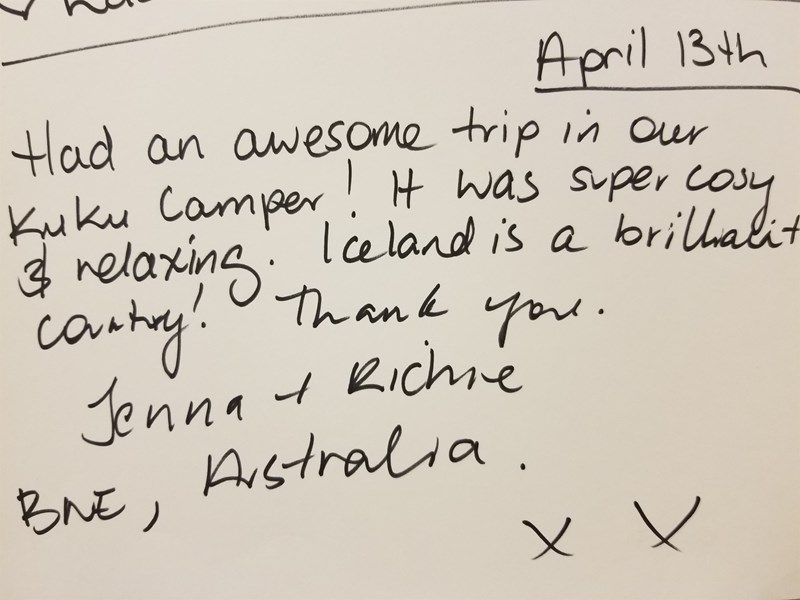 April 13th
Had an awesome trip in our
Kuku Camper! It was super cosy
& relaxing. Iceland is a brilliant
country! Thank you.
Jenna + Richie
BNE, Australia.
x x